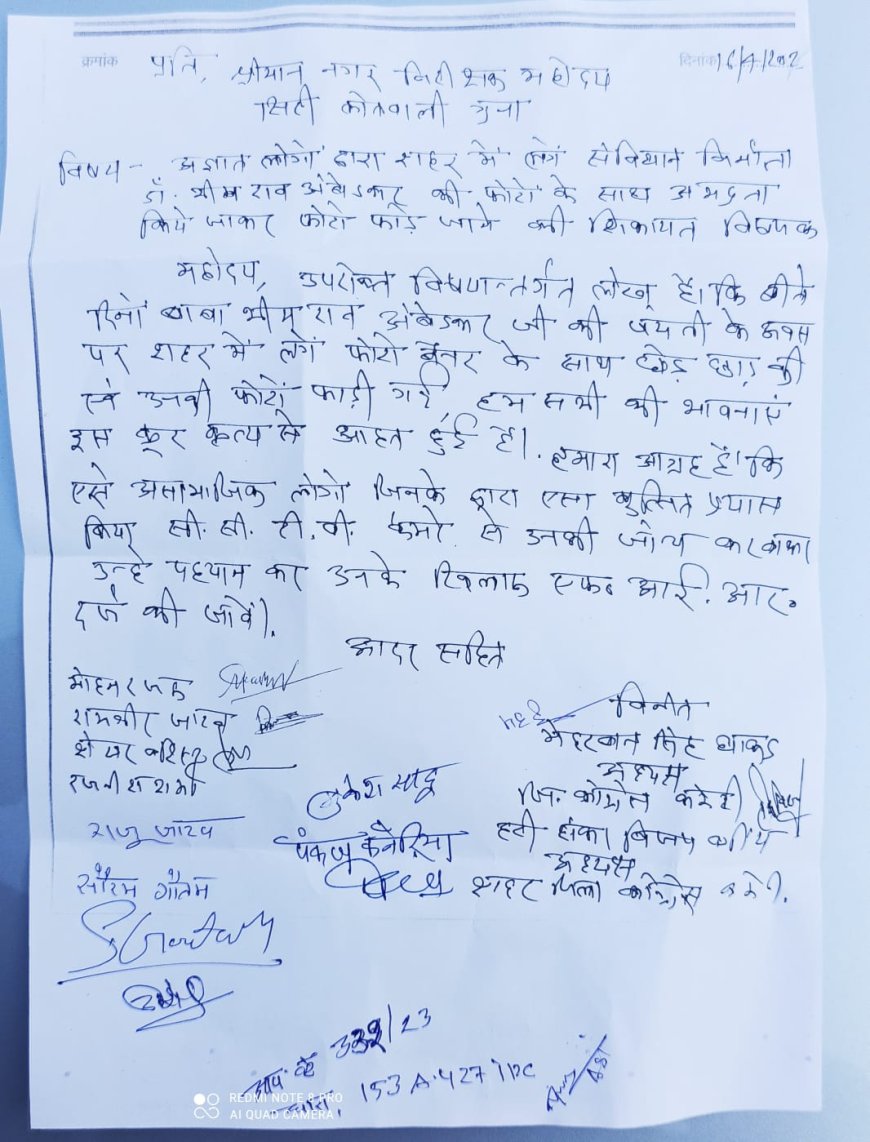 क्रमांक
दिनांक 16/4/202
प्रति, श्रीमान नगर निरीक्षक महोदय
सिटी कोतवाली गुना
विषय - अज्ञात लोगों द्वारा शहर में लगे संविधान निर्माता
डॉ. भीम राव अंबेडकर की फोटो के साथ अभद्रता
किये जाकर फोटो फाड़े जाने की शिकायत विषयक
महोदय, उपरोक्त विषयान्तर्गत लेख है। कि बीते
दिनों बाबा भीम राव अंबेडकर जी की जयंती के अवसर
पर शहर में लगे फोटो बैनर के साथ छेड़ छाड़ की
एवं उनकी फोटो फाड़ी गई, हम सभी की भावनाएं
इस क्रूर कृत्य से आहत हुई है। हमारा आग्रह है। कि
एसे असामाजिक लोगो जिनके द्वारा एसा कुत्सित प्रयास
किया सी. सी. टी. वी. केमरे से उनकी जांच करवाकर
उन्हे पहचान कर उनके खिलाफ एफ. आई. आर.
दर्ज की जावें।
आदर सहित
विनीत
मेहरबान सिंह धाकड़
अध्यक्ष
जि. कांग्रेस कमेटी
हरी शंकर विजयवर्गीय
अध्यक्ष
शहर जिला कांग्रेस कमेटी.
मोहन रजक
रामवीर जाटव
शेखर वशिष्ठ
रजनीश शर्मा
राजू जाटव
सौरभ गौतम
SGautam
पंकज कनेरिया
अप. क्रं. 332/23
धारा. 153 A. 427 IPC
REDMI NOTE 8 PRO
AI QUAD CAMERA